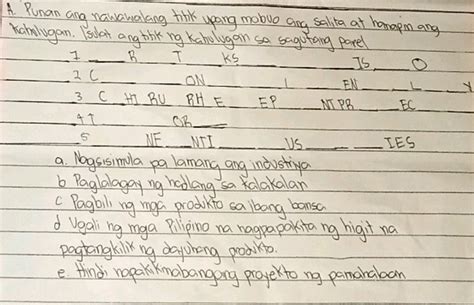 A. Punan ang nawawalang titik upang mabuo ang salita at hanapin ang
kahulugan. Isulat ang titik ng kahulugan sa sagutang papel
1 __ R __ T __ KS __ IS __ O
2 C __ ON __ I __ EN __ L __ Y
3 C __ HI RU __ RH E __ EP __ NI PR __ EC
4 T __ OR __
5 __ NE __ NTI __ US __ IES
a. Nagsisimula pa lamang ang industriya
b Paglalagay ng hadlang sa kalakalan
c Pagbili ng mga produkto sa ibang bansa
d Ugali ng mga Pilipino na nagpapakita ng higit na
pagtangkilik ng dayuhang produkto.
e Hindi napakikinabangang proyekto ng pamahalaan